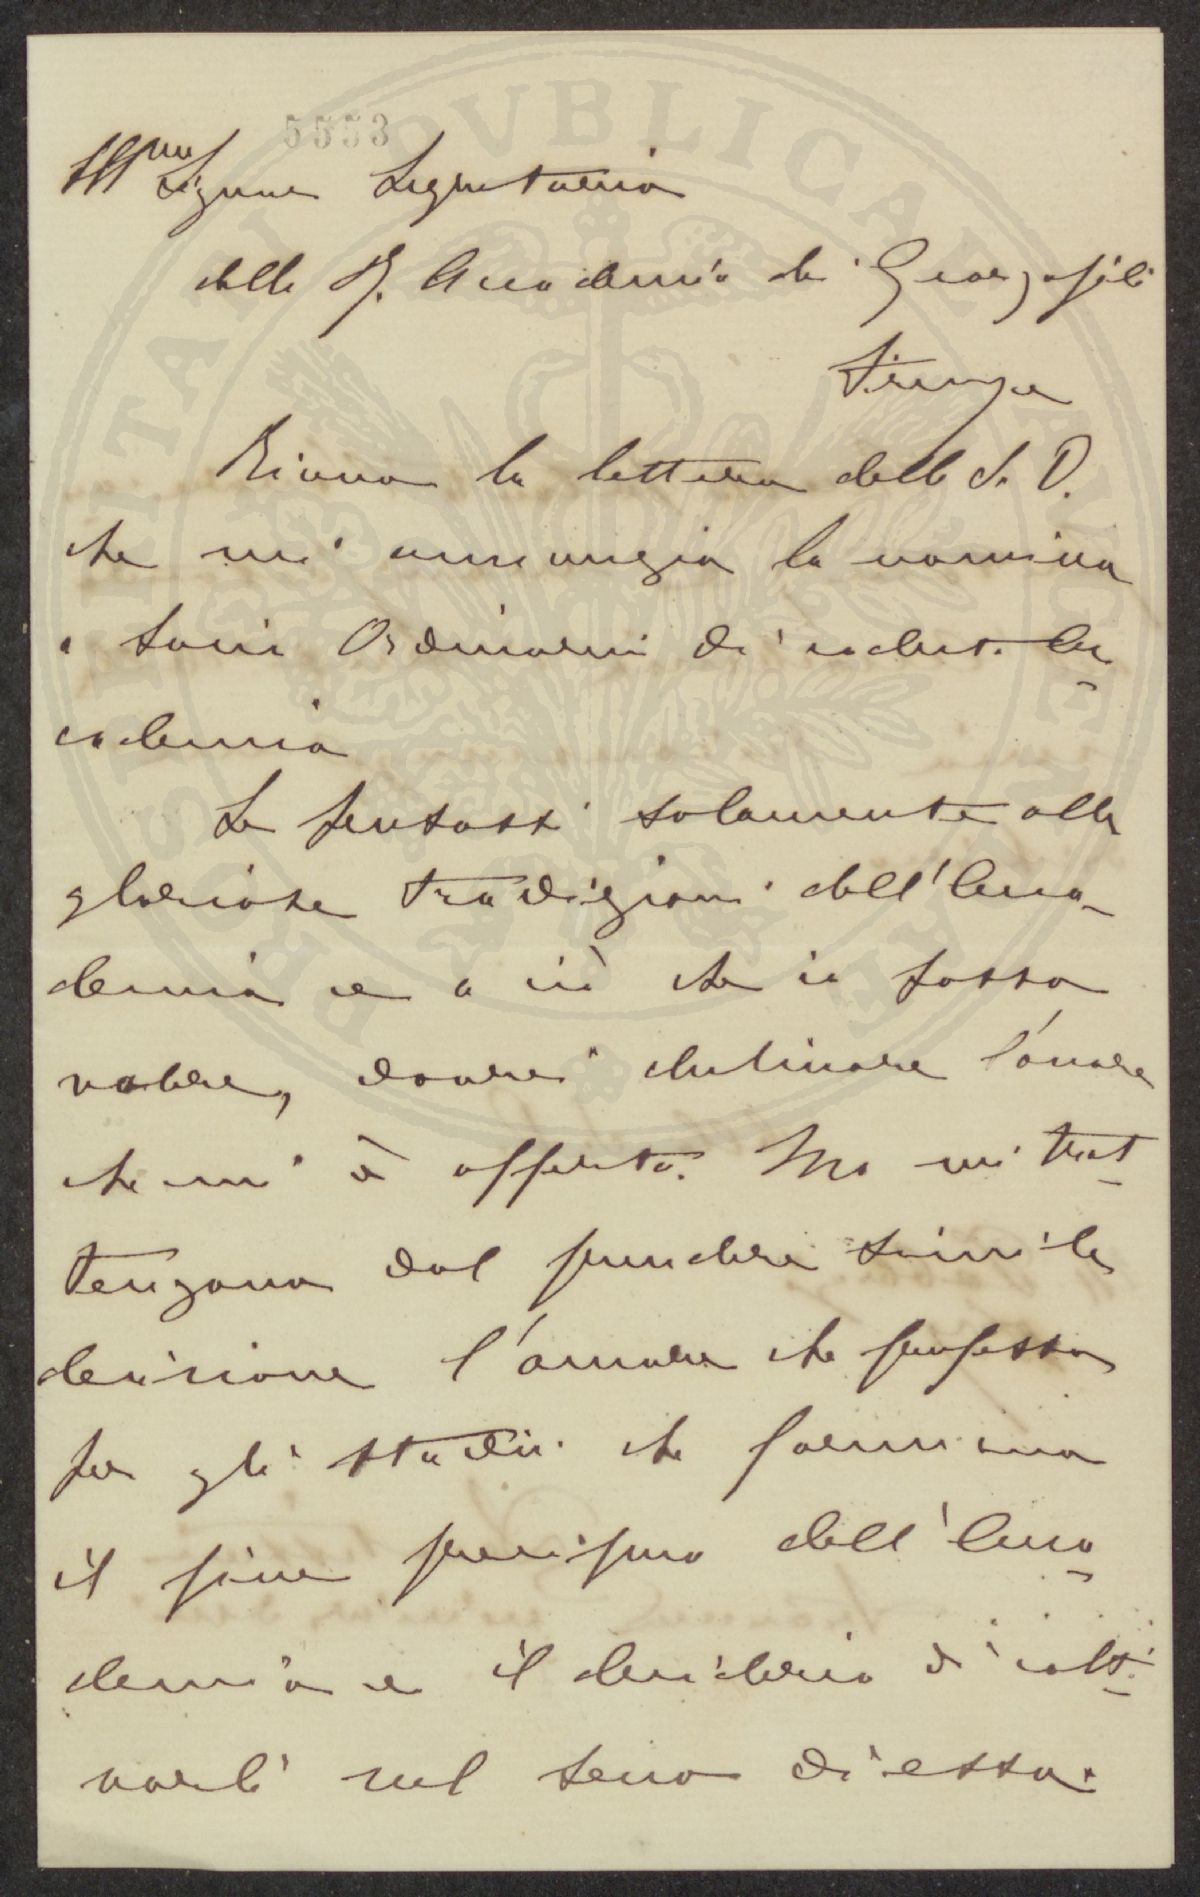 5553
Illmo Signor Segretario
della R. Accademia dei Georgofili
Firenze
Ricevo la lettera della S. V.
che mi annunzia la nomina
a Socio Ordinario di codest. Ac-
cademia
Se pensassi solamente alle
gloriose tradizioni dell'Acca-
demia e a ciò che io possa
valere, dovrei declinare l'onore
che mi è offerto. Ma mi trat-
tengono dal prendere simile
decisione l'amore che professo
per gli studii che formano
il fine precipuo dell'Acca-
demia e il desiderio di colti-
varli nel seno di essa.
PROSPERITATI PVBLICAE AVGENDAE